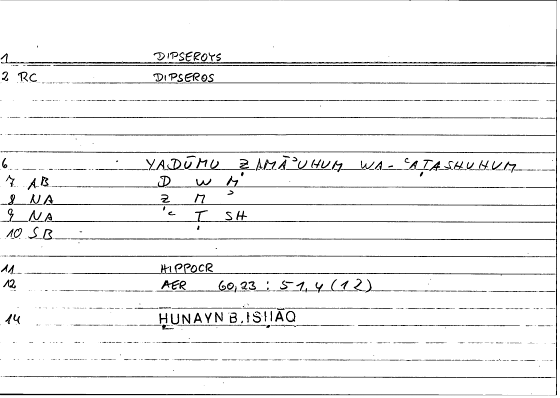 1 DIPSEROYS
2 RC DIPSEROS
6 YADŪMU ẒAMĀʾUHUM WA-ʿAṬASHUHUM
7 AB D W M
8 NA Ẓ M ʾ
9 NA ʿ Ṭ SH
10 SB
11 HIPPOCR
12 AER 60,23 : 51,4 (12)
14 ḤUNAYN B. ISḤĀQ